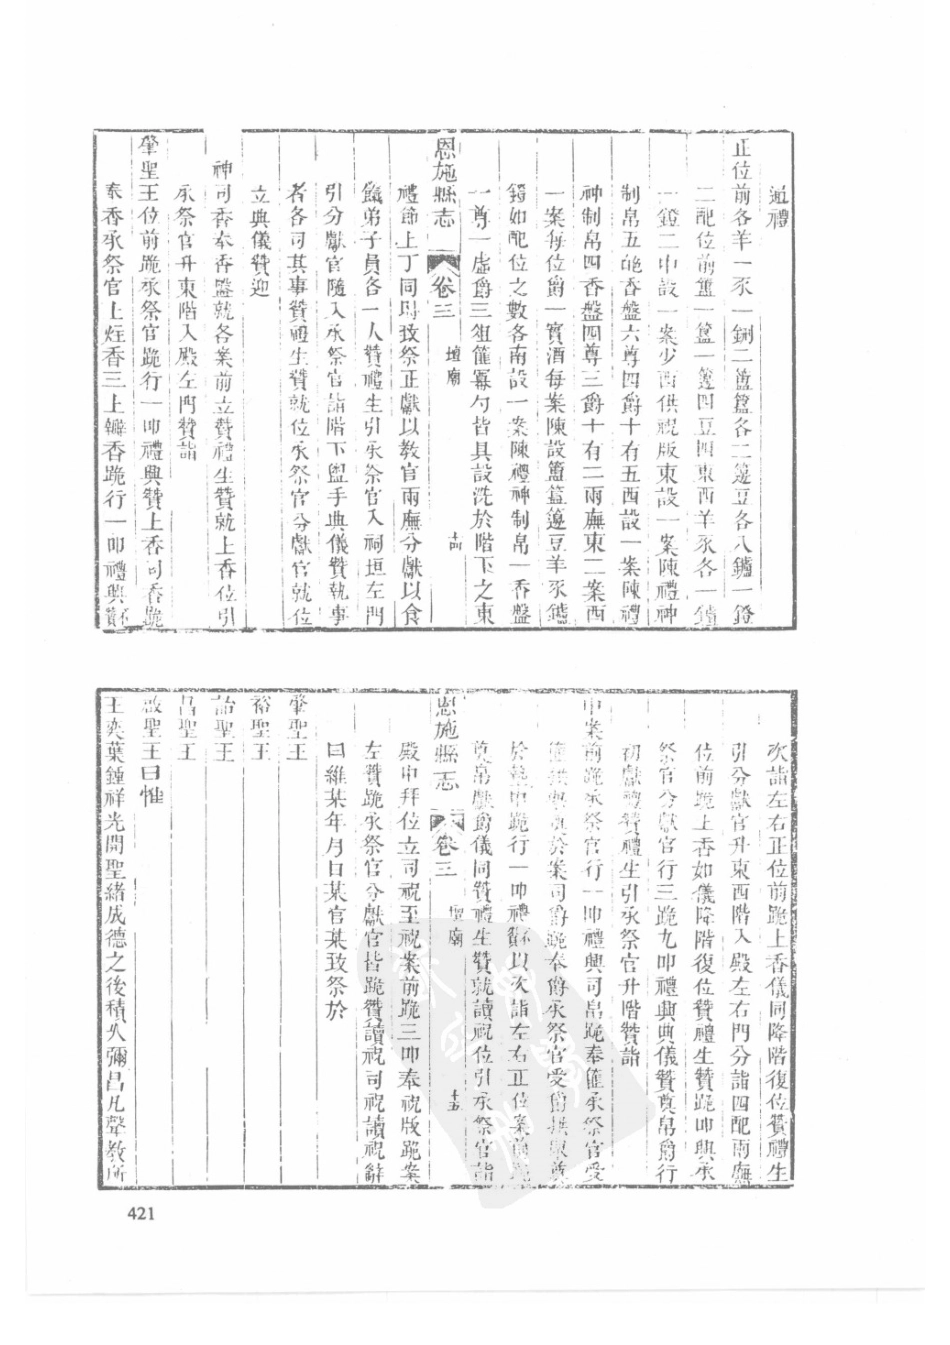 通禮
正位前各羊一豕一鉶二簠簋各二籩豆各八鑪一鐙
二配位前簠一簋一籩四豆四東西羊豕各一鑪
一鐙二中設一案少西供祝版東設一案陳禮神
制帛五香盤六尊四爵十有五西設一案陳禮
神制帛四香盤四尊三爵十有二兩廡東二案西
一案每位爵一實酒每案陳設簠簋籩豆羊豕鑪
鐙如配位之數各南設一案陳禮神制帛一香盤
一尊一虛爵三俎篚冪勺皆具設洗於階下之東
恩施縣志 卷三 壇廟 十四
禮節上丁同時致祭正獻以教官兩廡分獻以食
餼弟子員各一人贊禮生引承祭官入祠垣左門
引分獻官隨入承祭官詣階下盥手典儀贊執事
者各司其事贊禮生贊就位承祭官分獻官就位
立典儀贊迎
神司香奉香盤就各案前立贊禮生贊就上香位引
承祭官升東階入殿左門贊詣
肇聖王位前跪承祭官跪行一叩禮興贊上香司香跪
奉香承祭官上炷香三上瓣香跪行一叩禮興贊
次詣左右正位前跪上香儀同降階復位贊禮生
引分獻官升東西階入殿左右門分詣四配兩廡
位前跪上香如儀降階復位贊禮生贊跪叩興承
祭官分獻官行三跪九叩禮興典儀贊奠帛爵行
初獻禮贊禮生引承祭官升階贊詣
中案前跪承祭官行一叩禮興司帛跪奉篚承祭官受
篚拱舉奠於案司爵跪奉爵承祭官受爵拱舉奠
於墊中跪行一叩禮興以次詣左右正位案前跪
奠帛獻爵儀同贊禮生贊就讀祝位引承祭官詣
恩施縣志 卷三 聖廟 十五
殿中拜位立司祝至祝案前跪三叩奉祝版跪案
左贊跪承祭官分獻官皆跪贊讀祝司祝讀祝辭
曰維某年月日某官某致祭於
肇聖王
裕聖王
詒聖王
昌聖王
啟聖王曰惟
王奕葉鍾祥光開聖緒成德之後積久彌昌凡聲教所
421